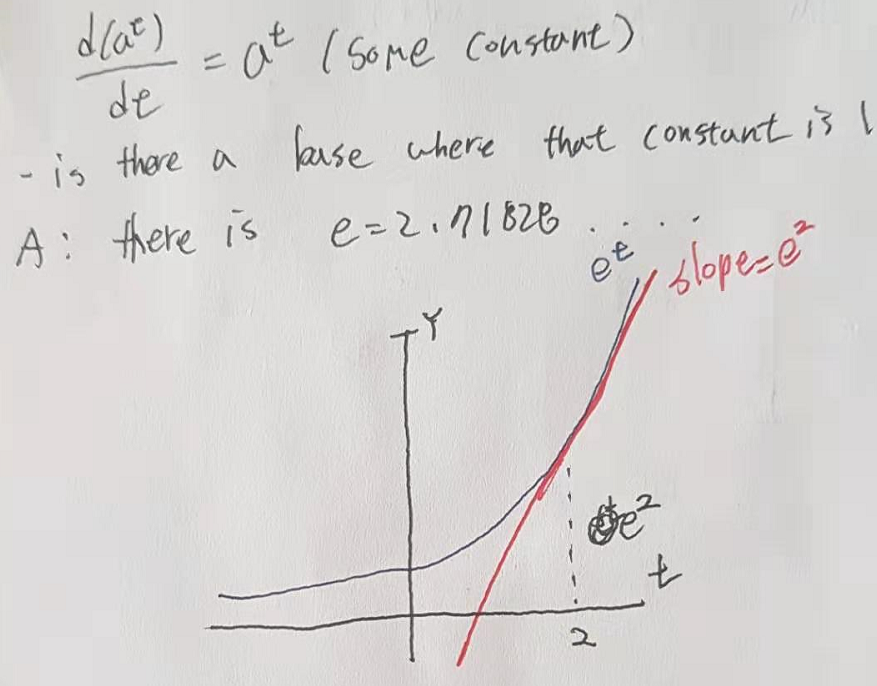 d(a^t)/dt = a^t (some constant)
- is there a base where that constant is 1
A: there is e=2.71828 . . . .
e^t slope=e^2
Y
e^2
t
2